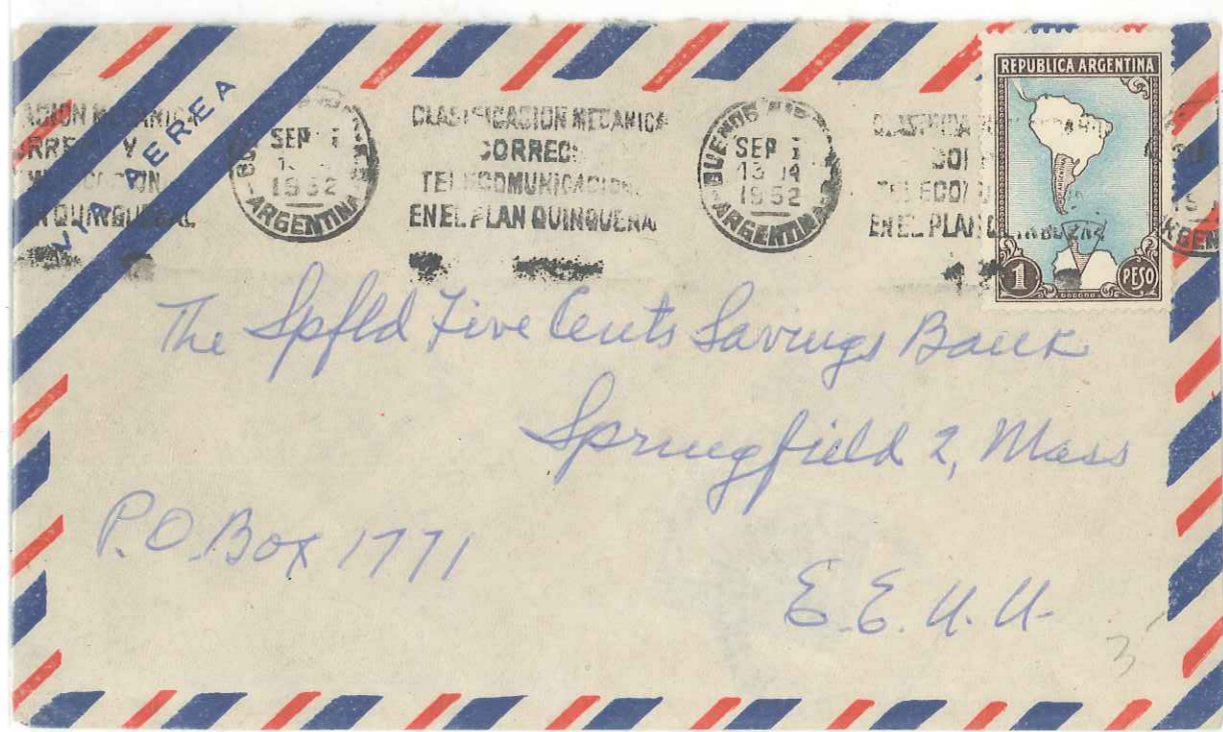 VIA AEREA
SEP
1952
ARGENTINA
CLASIFICACION MECANICA
CORREO
TELECOMUNICACION
EN EL PLAN QUINQUENAL
BUENOS
SEP
13
1952
ARGENTINA
EN EL PLAN
REPUBLICA ARGENTINA
ARGENTINA
1 PESO
The Spfld Five Cents Savings Bank
Springfield 2, Mass
P.O. Box 1771
E.E.U.U.
3